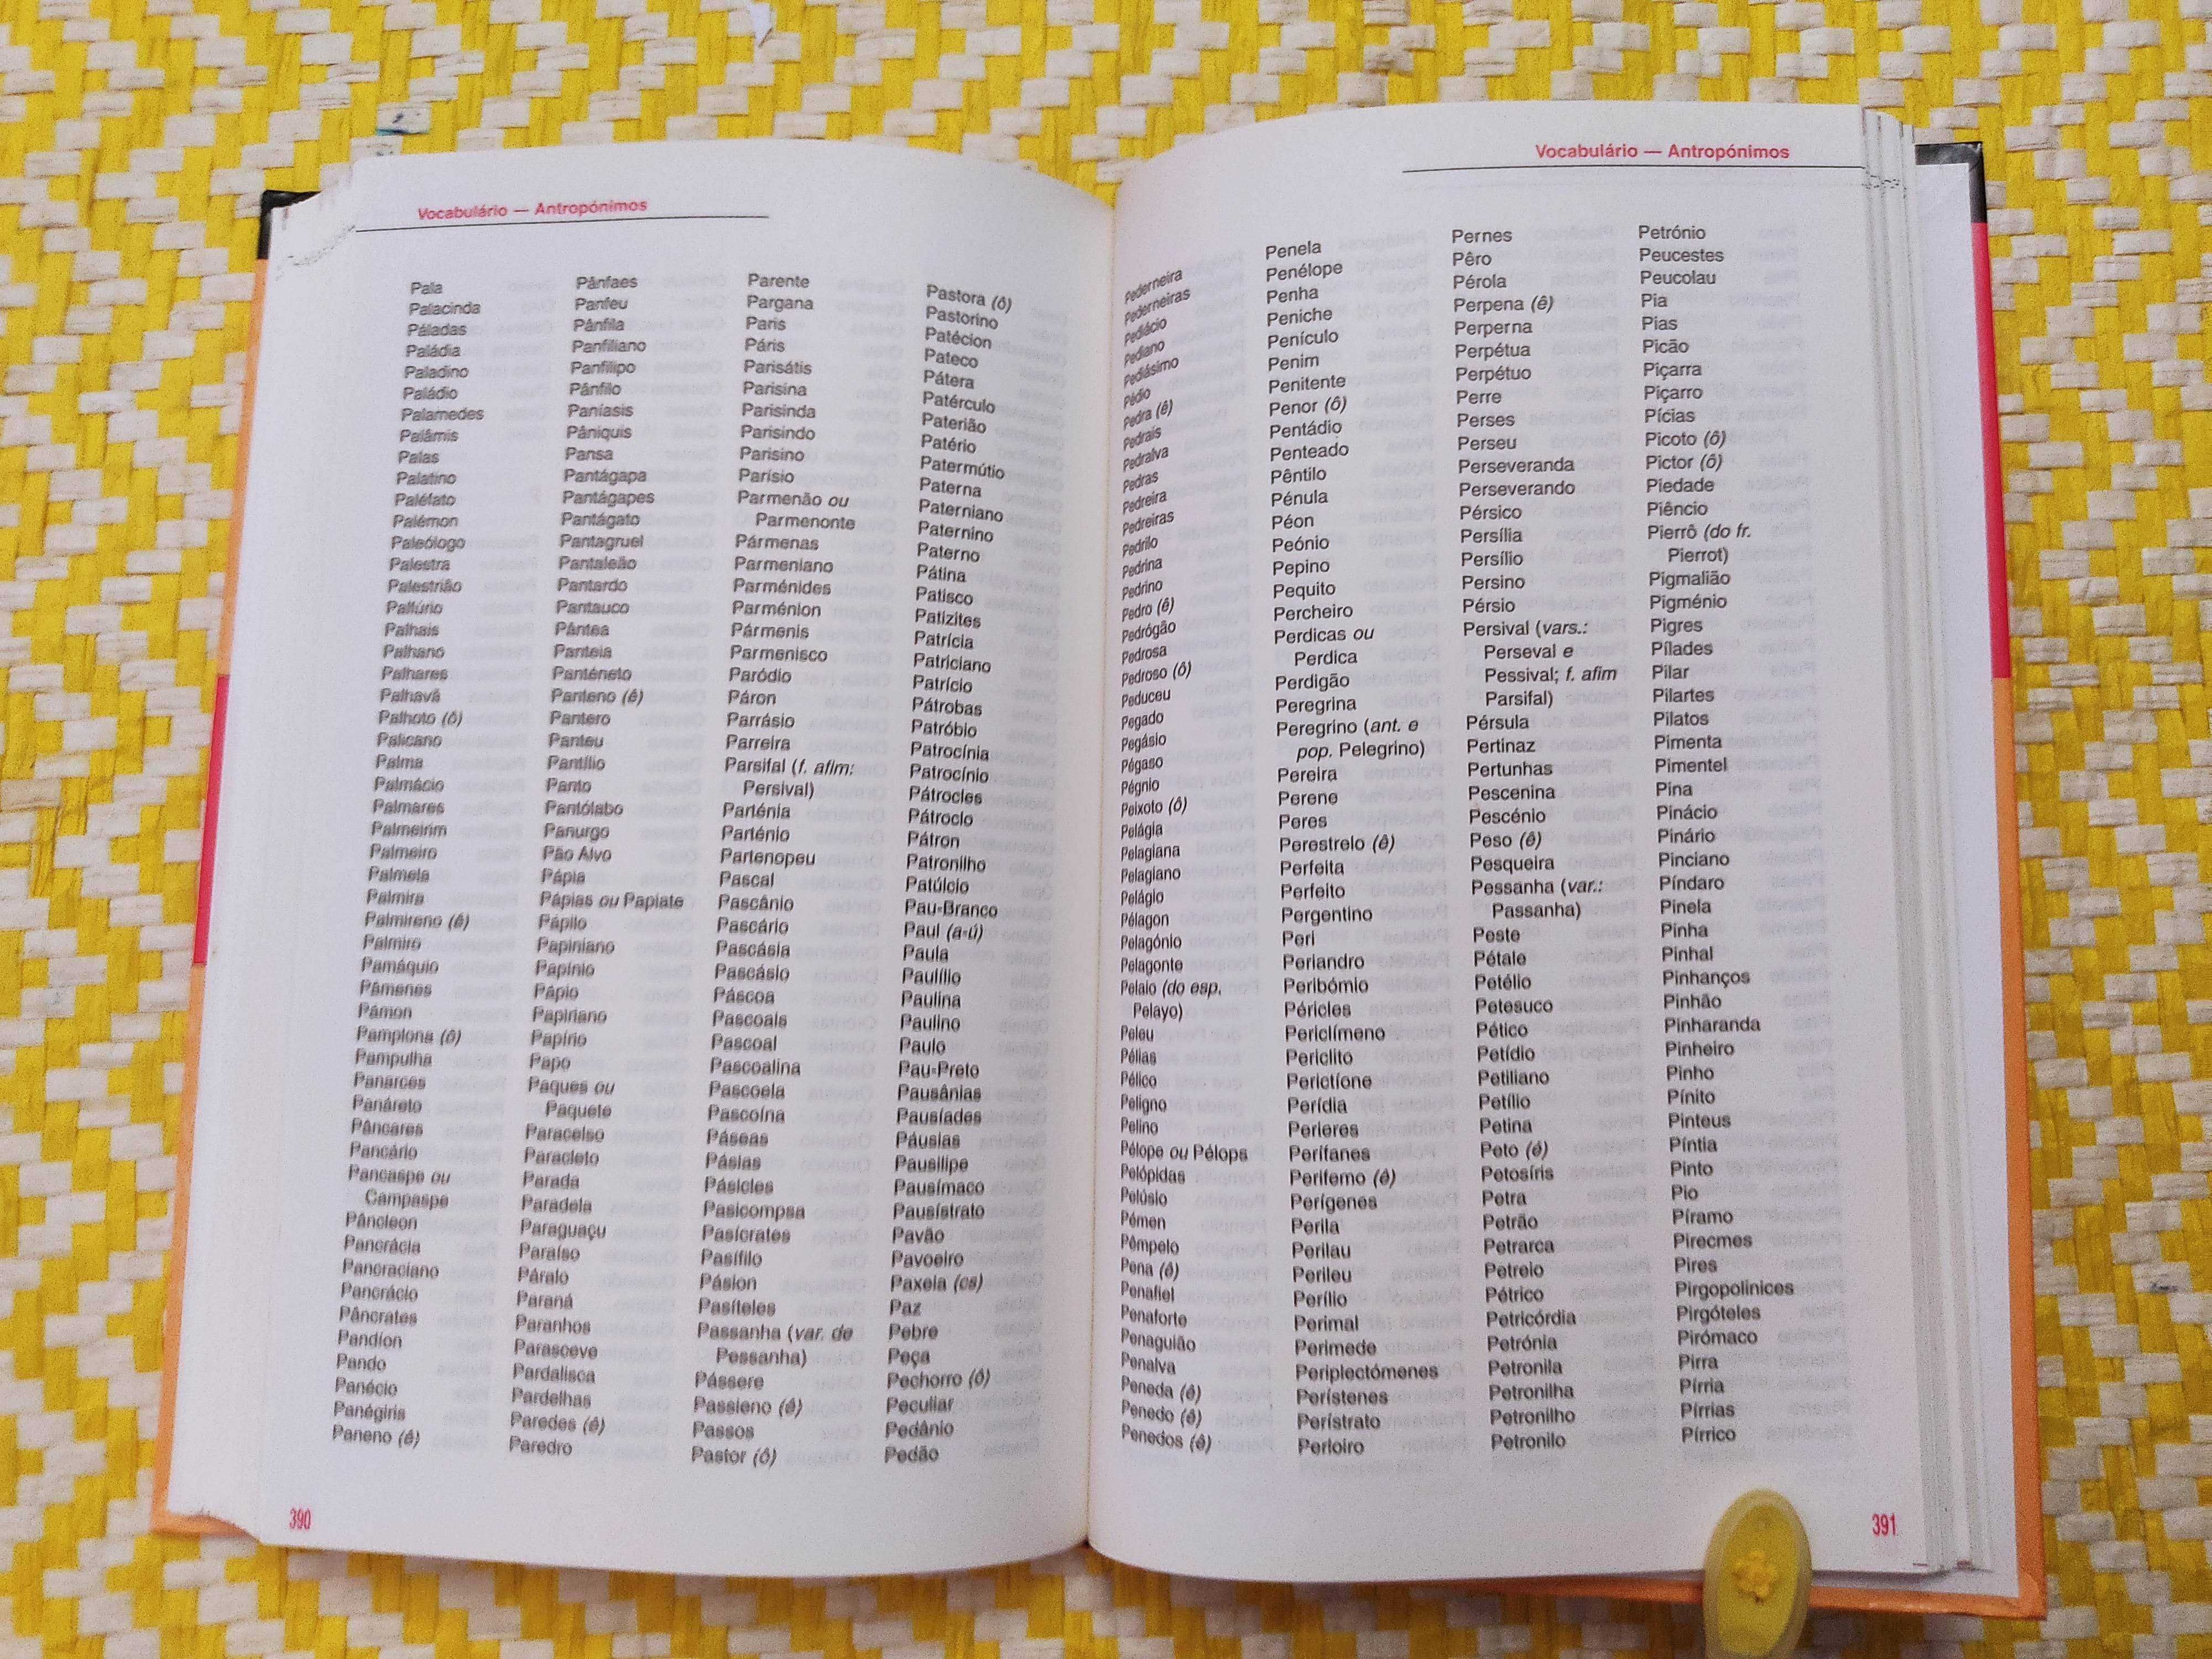 Vocabulário — Antropónimos
Pala
Palacinda
Páladas
Paládia
Paladino
Paládio
Palamedes
Palâmis
Palas
Palatino
Paléfato
Palémon
Paleólogo
Palestra
Palestrião
Palfúrio
Palhais
Palhano
Palhares
Palhavã
Palhoto (ô)
Palicano
Palma
Palmácio
Palmares
Palmeirim
Palmeiro
Palmela
Palmira
Palmireno (ê)
Palmiro
Pamáquio
Pâmenes
Pámon
Pamplona (ô)
Pampulha
Panarces
Panáreto
Pâncares
Pancário
Pancaspe ou
Campaspe
Pâncleon
Pancrácia
Pancraciano
Pancrácio
Pâncrates
Pandíon
Pando
Panécio
Panégiris
Paneno (ê)
Pânfaes
Panfeu
Pânfila
Panfiliano
Panfilipo
Pânfilo
Paníasis
Pâniquis
Pansa
Pantágapa
Pantágapes
Pantágato
Pantagruel
Pantaleão
Pantardo
Pantauco
Pântea
Panteia
Panténeto
Panteno (ê)
Pantero
Panteu
Pantílio
Panto
Pantólabo
Panurgo
Pão Alvo
Pápia
Pápias ou Papiate
Pápilo
Papiniano
Papínio
Pápio
Papiriano
Papírio
Papo
Paques ou
Paquete
Paracelso
Paracleto
Parada
Paradela
Paraguaçu
Paraíso
Páralo
Paraná
Paranhos
Parasceve
Pardalisca
Pardelhas
Paredes (ê)
Paredro
Parente
Pargana
Paris
Páris
Parisátis
Parisina
Parisinda
Parisindo
Parisino
Parísio
Parmenão ou
Parmenonte
Pármenas
Parmeniano
Parménides
Parménion
Pármenis
Parmenisco
Paródio
Páron
Parrásio
Parreira
Parsifal (f. afim:
Persival)
Parténia
Parténio
Partenopeu
Pascal
Pascânio
Pascário
Pascásia
Pascásio
Páscoa
Pascoais
Pascoal
Pascoalina
Pascoela
Pascoína
Páseas
Pásias
Pásicles
Pasicompsa
Pasícrates
Pasífilo
Pásion
Pasíteles
Passanha (var. de
Pessanha)
Pássere
Passieno (ê)
Passos
Pastor (ô)
Pastora (ô)
Pastorino
Patécion
Pateco
Pátera
Patérculo
Paterião
Patério
Patermútio
Paterna
Paterniano
Paternino
Paterno
Pátina
Patisco
Patizites
Patrícia
Patriciano
Patrício
Pátrobas
Patróbio
Patrocínia
Patrocínio
Pátrocles
Pátroclo
Pátron
Patronilho
Patúlcio
Pau-Branco
Paul (a-ú)
Paula
Paulílio
Paulina
Paulino
Paulo
Pau-Preto
Pausânias
Pausíades
Páusias
Pausílipe
Pausímaco
Pausístrato
Pavão
Pavoeiro
Paxeia (cs)
Paz
Pebre
Peça
Pechorro (ô)
Peculiar
Pedânio
Pedão
390
Vocabulário — Antropónimos
Pederneira
Pederneiras
Pediácio
Pediano
Pediásimo
Pédio
Pedra (ê)
Pedrais
Pedralva
Pedras
Pedreira
Pedreiras
Pedrilo
Pedrina
Pedrino
Pedro (ê)
Pedrógão
Pedrosa
Pedroso (ô)
Peduceu
Pegado
Pegásio
Pégaso
Pégnio
Peixoto (ô)
Pelágia
Pelagiana
Pelagiano
Pelágio
Pélagon
Pelagónio
Pelagonte
Pelaio (do esp.
Pelayo)
Peleu
Pélias
Pélico
Peligno
Pelino
Pélope ou Pélops
Pelópidas
Pelúsio
Pémen
Pêmpelo
Pena (ê)
Penafiel
Penaforte
Penaguião
Penalva
Peneda (ê)
Penedo (ê)
Penedos (ê)
Penela
Penélope
Penha
Peniche
Penículo
Penim
Penitente
Penor (ô)
Pentádio
Penteado
Pêntilo
Pénula
Péon
Peónio
Pepino
Pequito
Percheiro
Perdicas ou
Perdica
Perdigão
Peregrina
Peregrino (ant. e
pop. Pelegrino)
Pereira
Perene
Peres
Perestrelo (ê)
Perfeita
Perfeito
Pergentino
Peri
Periandro
Peribómio
Péricles
Periclímeno
Periclito
Perictíone
Perídia
Perieres
Perífanes
Perifemo (ê)
Perígenes
Perila
Perilau
Perileu
Perílio
Perimal
Perimede
Periplectómenes
Perístenes
Perístrato
Perloiro
Pernes
Pêro
Pérola
Perpena (ê)
Perperna
Perpétua
Perpétuo
Perre
Perses
Perseu
Perseveranda
Perseverando
Pérsico
Persília
Persílio
Persino
Pérsio
Persival (vars.:
Perseval e
Pessival; f. afim
Parsifal)
Pérsula
Pertinaz
Pertunhas
Pescenina
Pescénio
Peso (ê)
Pesqueira
Pessanha (var.:
Passanha)
Peste
Pétale
Petélio
Petesuco
Pético
Petídio
Petiliano
Petílio
Petina
Peto (é)
Petosíris
Petra
Petrão
Petrarca
Petreio
Pétrico
Petricórdia
Petrónia
Petronila
Petronilha
Petronilho
Petronilo
Petrónio
Peucestes
Peucolau
Pia
Pias
Picão
Piçarra
Piçarro
Pícias
Picoto (ô)
Pictor (ô)
Piedade
Piêncio
Pierrô (do fr.
Pierrot)
Pigmalião
Pigménio
Pigres
Pílades
Pilar
Pilartes
Pilatos
Pimenta
Pimentel
Pina
Pinácio
Pinário
Pinciano
Píndaro
Pinela
Pinha
Pinhal
Pinhanços
Pinhão
Pinharanda
Pinheiro
Pinho
Pínito
Pinteus
Píntia
Pinto
Pio
Píramo
Pirecmes
Pires
Pirgopolinices
Pirgóteles
Pirómaco
Pirra
Pírria
Pírrias
Pírrico
391